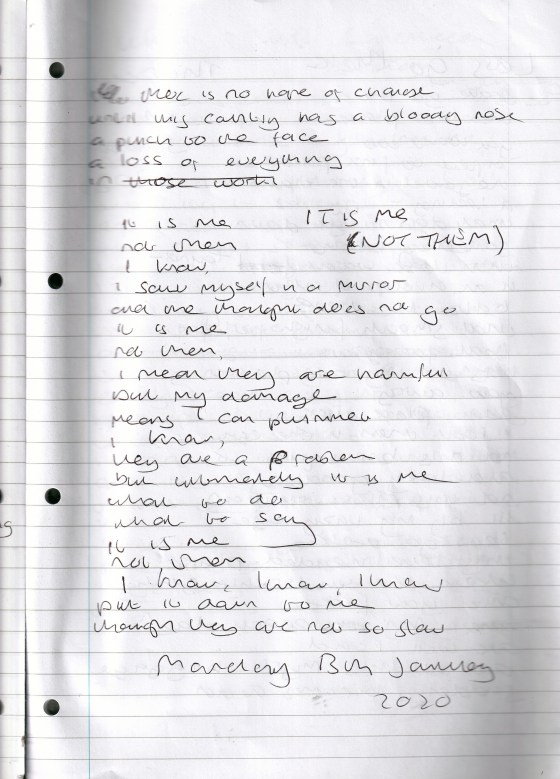 there is no hope of change
until this country has a bloody nose
a punch to the face
a loss of everything
in those world
it is me IT IS ME
not them (NOT THEM)
I know,
I saw myself in a mirror
and the thought does not go
it is me
not them,
I mean they are harmful
but my damage
means I can plummet
I know,
they are a problem
but ultimately it is me
what to do
what to say
it is me
not them
I know, I know, I know
put it down to me
though they are not so slow
Monday 13th January
2020